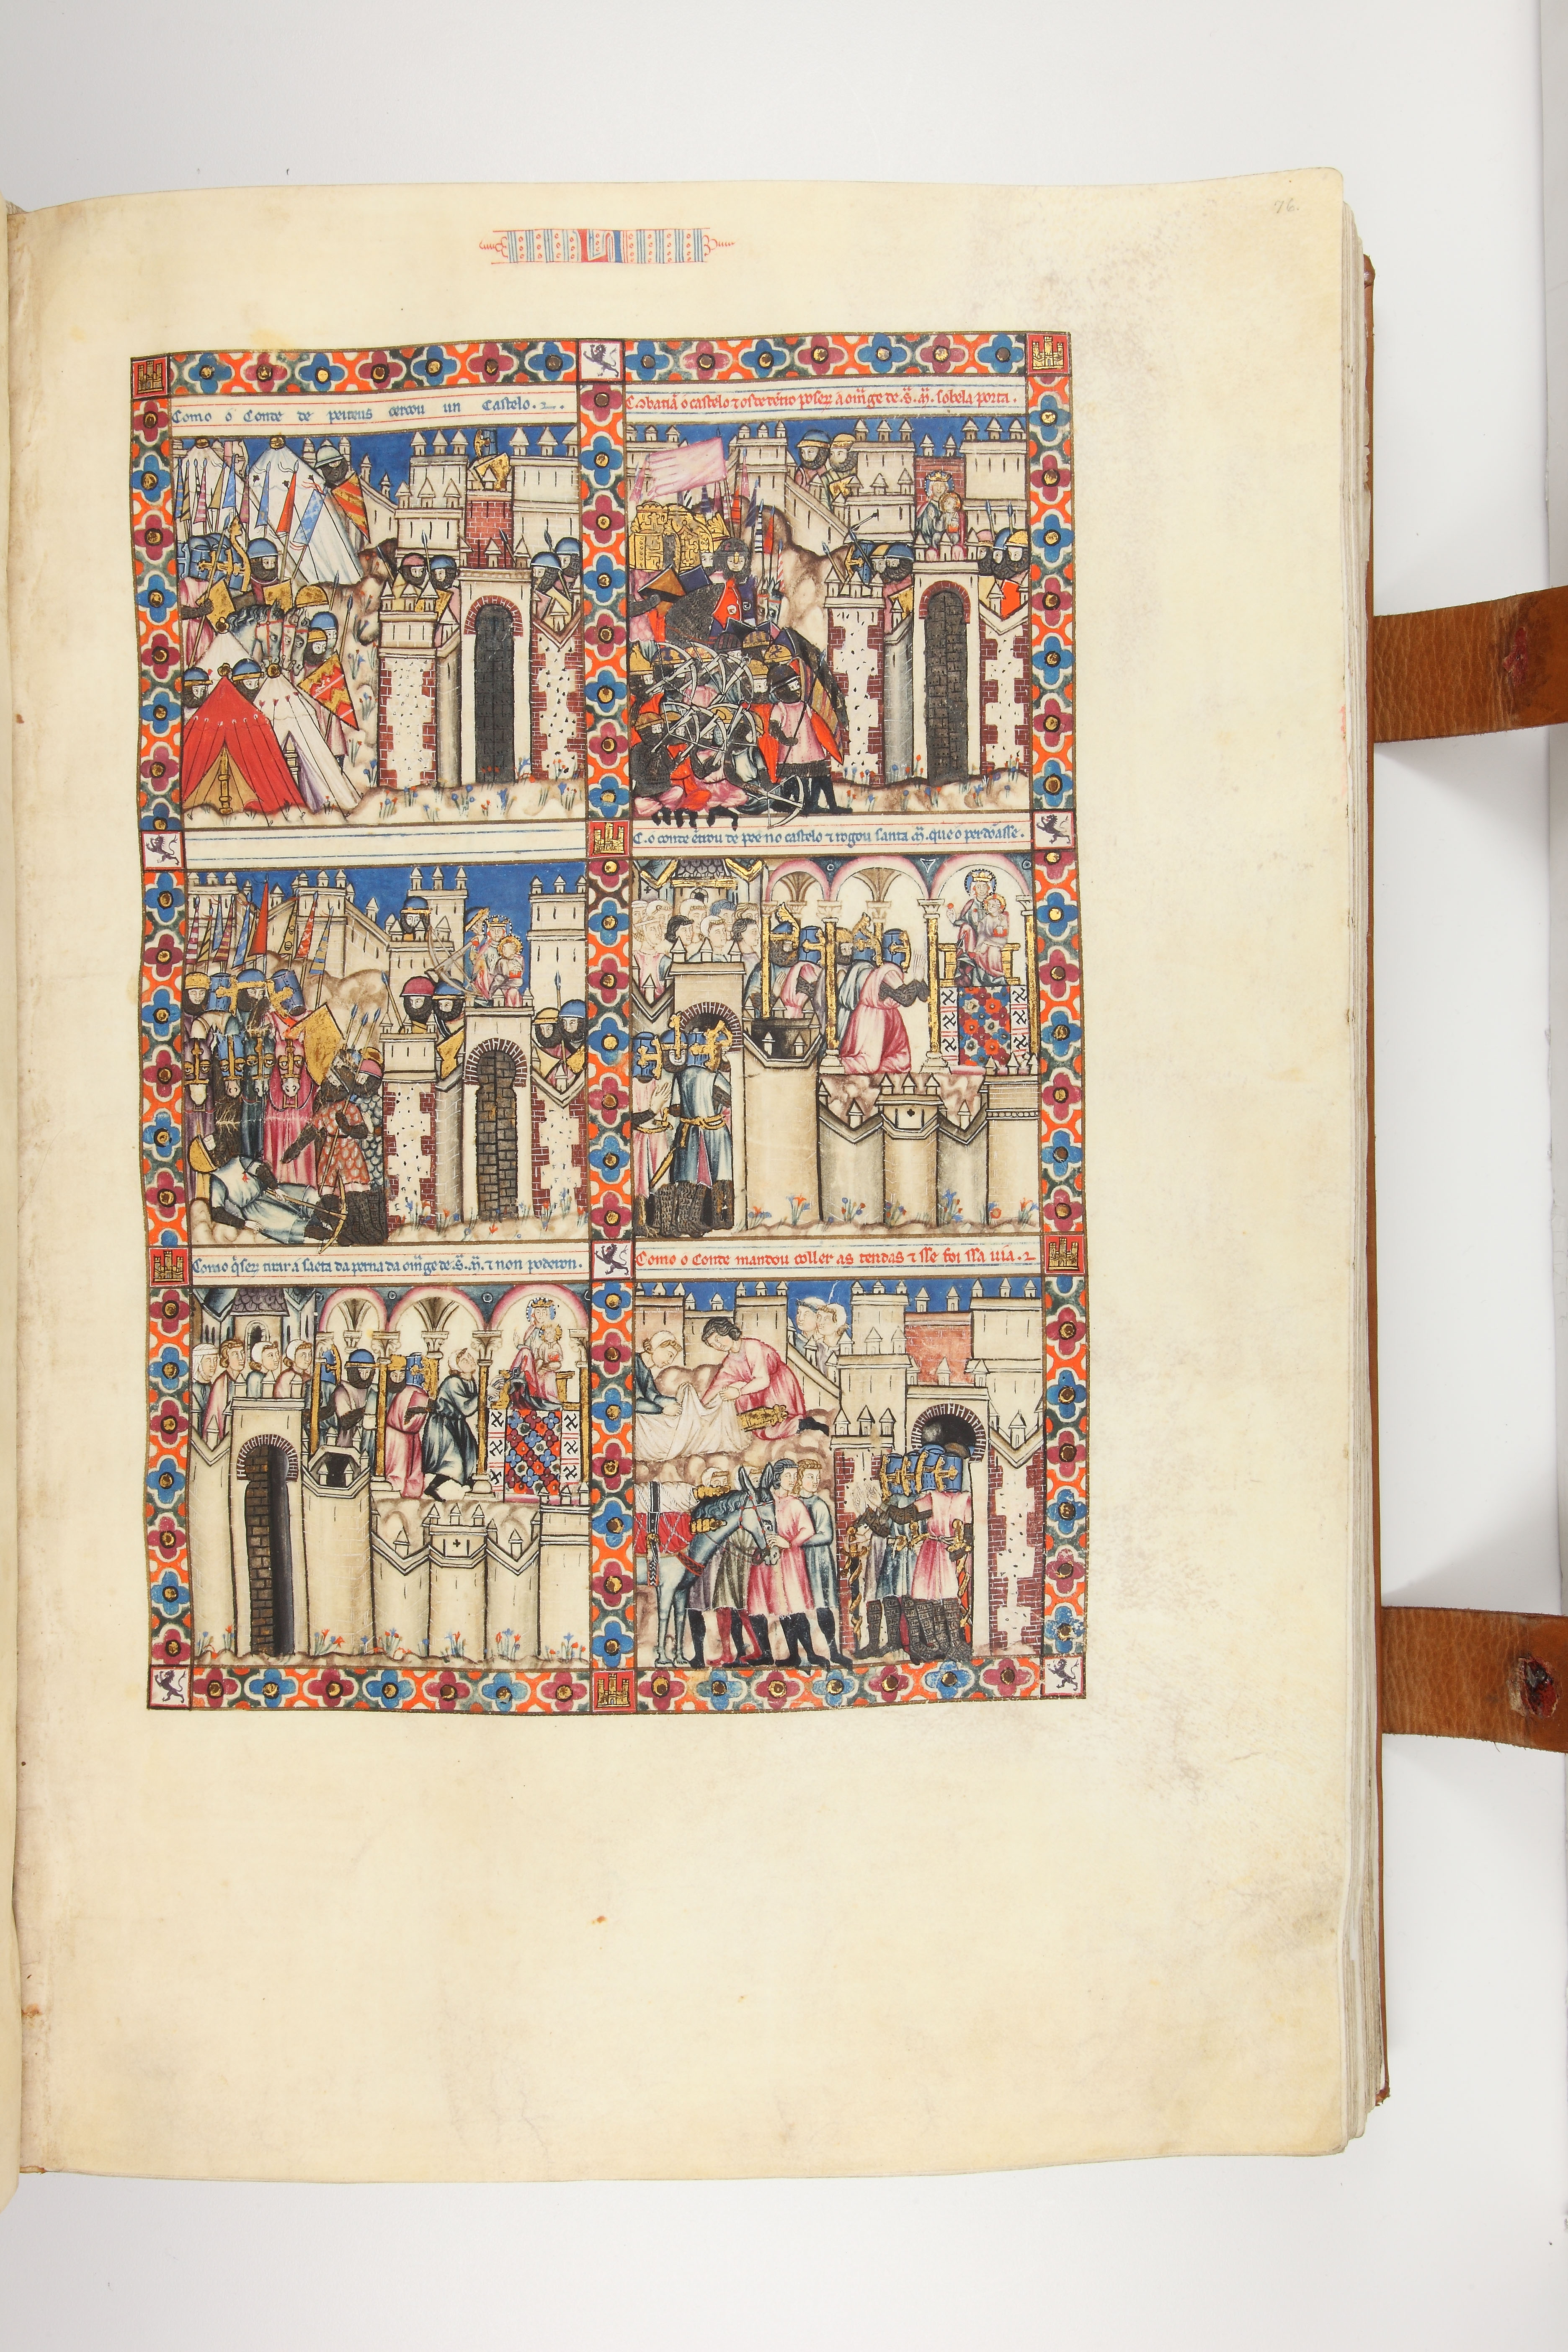 76.
Como o Conde de peiteus cercou un Castelo.
Cōbatiā o castelo ⁊ os de dētro poserō a omāgē de .S. M̄. sobela porta.
C. o conde ētrou de pee no castelo ⁊ rogou santa M̄. que o perdōasse.
Como q̇serō tirar a saeta da perna da omāgē de .S. M̄. ⁊ non poderon.
Como o Conde mandou coller as tendas ⁊ sse foi ssa uia.